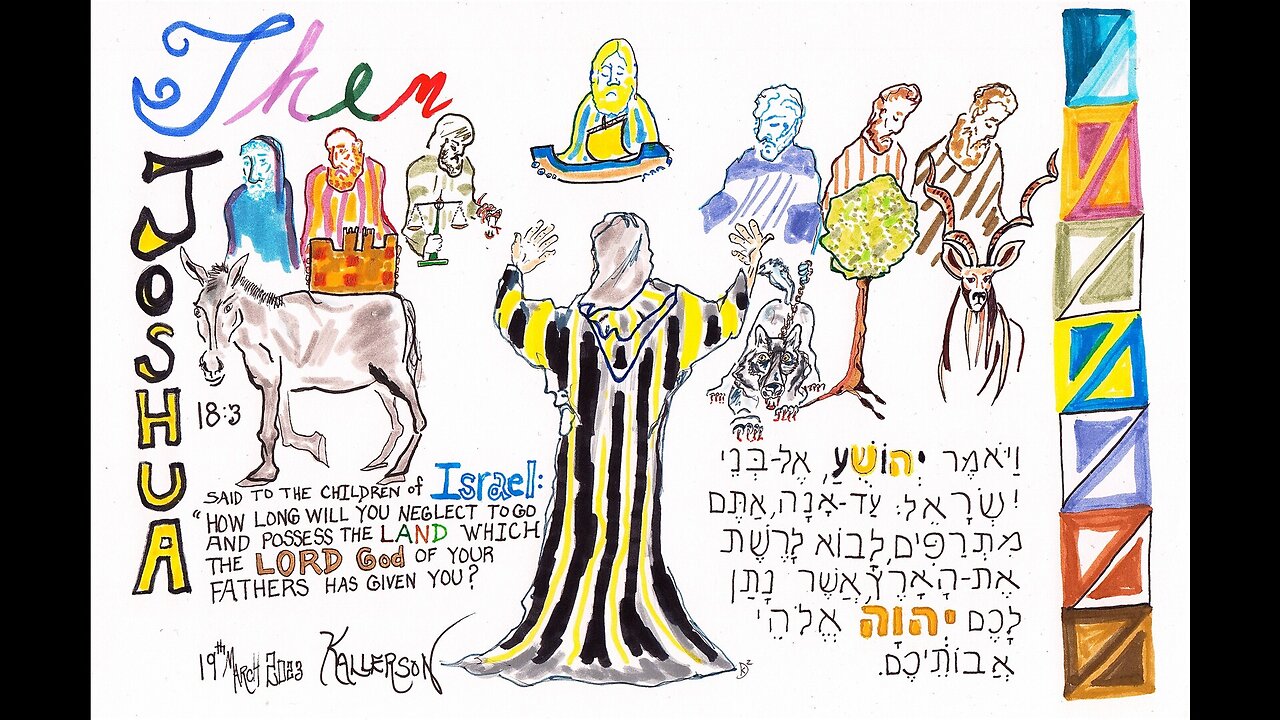 Then
JOSHUA
18:3
SAID TO THE CHILDREN of Israel:
"HOW LONG WILL YOU NEGLECT TO GO
AND POSSESS THE LAND WHICH
THE LORD God OF YOUR
FATHERS HAS GIVEN YOU?
19th March 2023 KALLERSON
וַיֹּאמֶר יְהוֹשֻׁעַ, אֶל-בְּנֵי
יִשְׂרָאֵל: עַד-אָנָה, אַתֶּם
מִתְרַפִּים, לָבוֹא לָרֶשֶׁת
אֶת-הָאָרֶץ, אֲשֶׁר נָתַן
לָכֶם יְהוָה אֱלֹהֵי
אֲבוֹתֵיכֶם.